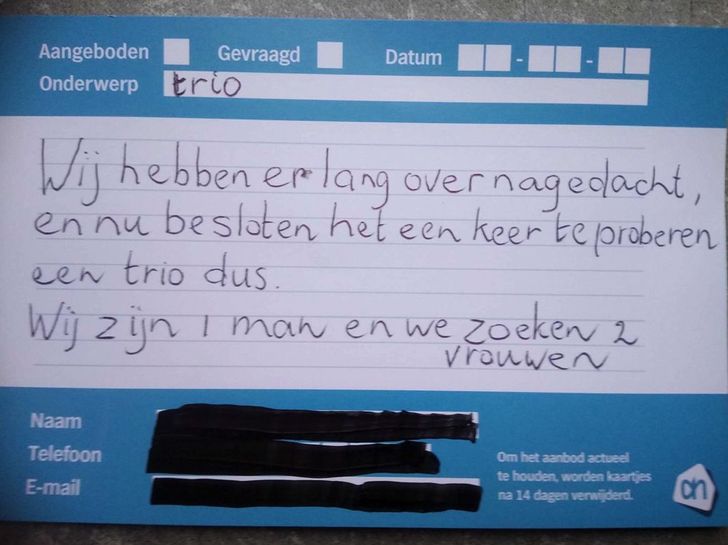 Aangeboden Gevraagd Datum - -
Onderwerp trio
Wij hebben er lang over nagedacht,
en nu besloten het een keer te proberen
een trio dus.
Wij zijn 1 man en we zoeken 2
vrouwen
Naam
Telefoon
E-mail
Om het aanbod actueel
te houden, worden kaartjes
na 14 dagen verwijderd.
ah